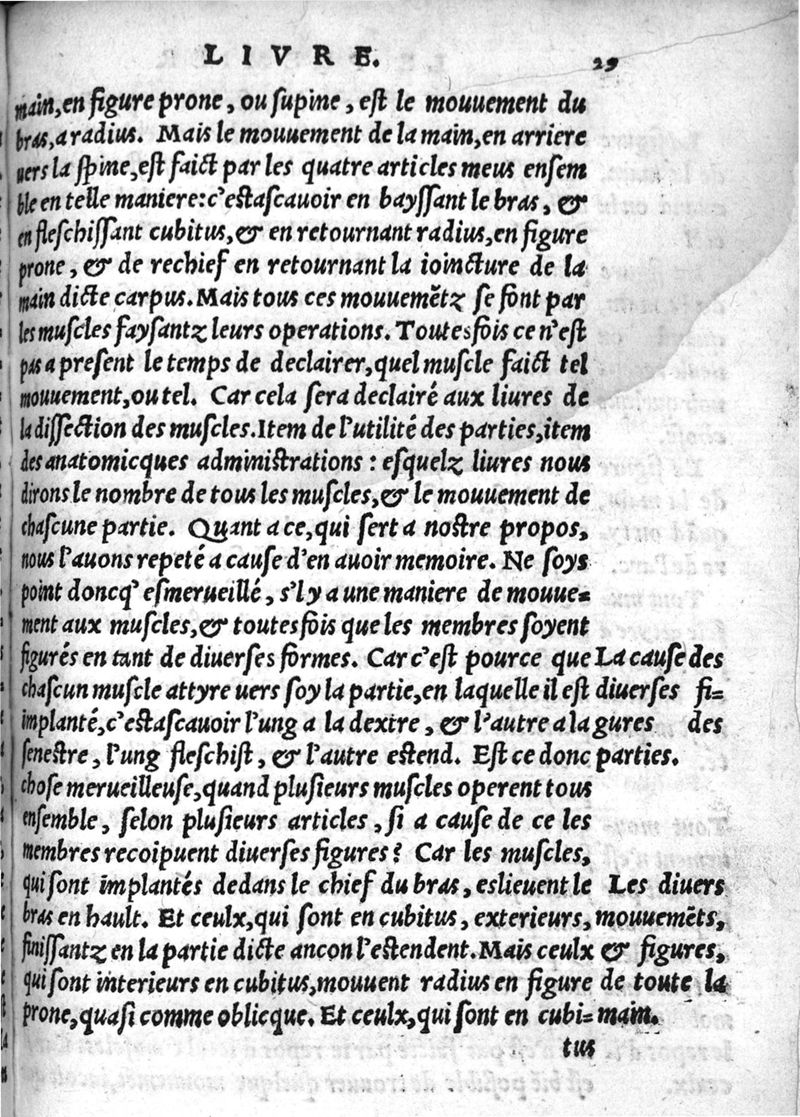 LIVRE. 29
main, en figure prone, ou supine, est le mouuement du
bras, a radius. Mais le mouuement de la main, en arriere
uers la spine, est faict par les quatre articles meus ensem
ble en telle maniere: c'estascauoir en bayssant le bras, &
en fleschissant cubitus, & en retournant radius, en figure
prone, & de rechief en retournant la ioincture de la
main dicte carpus. Mais tous ces mouuemẽtz se font par
les muscles faysantz leurs operations. Toutesfois ce n'est
pas a present le temps de declairer, quel muscle faict tel
mouuement, ou tel. Car cela sera declairé aux liures de
la dissection des muscles. Item de l'utilité des parties, item
des anatomicques administrations: esquelz liures nous
dirons le nombre de tous les muscles, & le mouuement de
chascune partie. Quant a ce, qui sert a nostre propos,
nous l'auons repeté a cause d'en auoir memoire. Ne soys
point doncq' esmerueillé, s'il y a une maniere de mouue=
ment aux muscles, & toutesfois que les membres soyent
figurés en tant de diuerses formes. Car c'est pource que
chascun muscle attyre uers soy la partie, en laquelle il est
implanté, c'estascauoir l'ung a la dextre, & l'autre a la
senestre, l'ung fleschist, & l'autre estend. Est ce donc
chose merueilleuse, quand plusieurs muscles operent tous
ensemble, selon plusieurs articles, si a cause de ce les
membres recoipuent diuerses figures? Car les muscles,
qui sont implantés dedans le chief du bras, eslieuent le
bras en hault. Et ceulx, qui sont en cubitus, exterieurs,
finissantz en la partie dicte ancon l'estendent. Mais ceulx
qui sont interieurs en cubitus, mouuent radius en figure
prone, quasi comme oblicque. Et ceulx, qui sont en cubi=
tus
La cause des
diuerses fi=
gures des
parties.
Les diuers
mouuemẽts,
& figures,
de toute la
main.